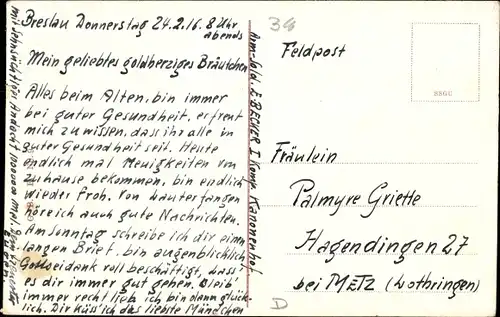 Breslau Donnerstag 24.2.16. 8 Uhr
abends
Mein geliebtes goldherziges Bräutchen
Alles beim Alten, bin immer
bei guter Gesundheit, erfreut
mich zu wissen, dass ihr alle in
guter Gesundheit seit. Heute
endlich mal Neuigkeiten von
zuhause bekommen, bin endlich
wieder froh. Von Lauterfangen
höre ich auch gute Nachrichten.
Am Sonntag schreibe ich dir einen
langen Brief, bin augenblicklich
Gottseidank voll beschäftigt, dass
es dir immer gut gehen. Bleib'
immer recht lieb ich bin dann glück-
lich. Dir küss ich das liebste Mündchen
mit sehnsüchtiger Andacht 1000000 Mal. Dein
Arm-Sold. E BECKER I Komp. Kanonenhof.
34
Feldpost
SSGC
Fräulein
Palmyre Griette
Hagendingen 27
bei METZ (Lothringen)
D